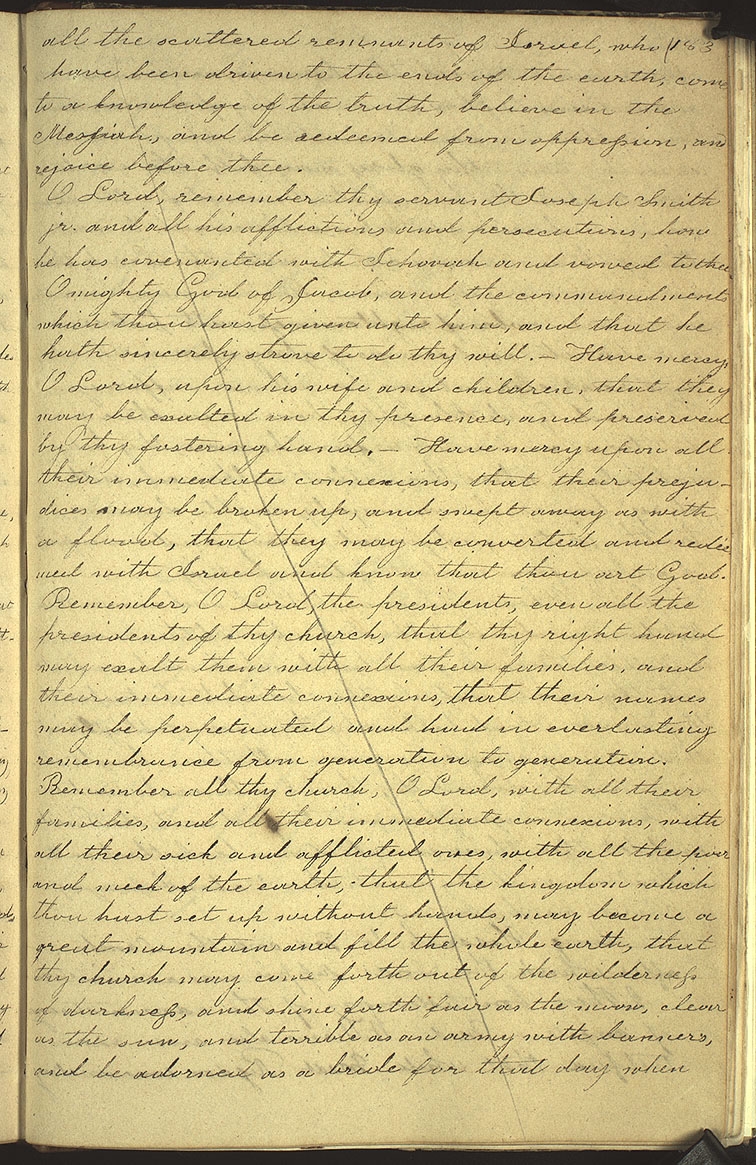 all the scattered remnants of Israel, who 183
have been driven to the ends of the earth, come
to a knowledge of the truth, believe in the
Messiah, and be redeemed from oppression, and
rejoice before thee.
O Lord, remember thy servant Joseph Smith
jr. and all his afflictions and persecutions, how
he has covenanted with Jehovah and vowed to thee
O mighty God of Jacob, and the commandments
which thou hast given unto him, and that he
hath sincerely strove to do thy will. — Have mercy,
O Lord, upon his wife and children, that they
may be exalted in thy presence, and preserved
by thy fostering hand. — Have mercy upon all
their immediate connexions, that their preju-
dices may be broken up, and swept away as with
a flood, that they may be converted and redee
med with Israel and know that thou art God.
Remember, O Lord, the presidents, even all the
presidents of thy church, that thy right hand
may exalt them with all their families, and
their immediate connexions, that their names
may be perpetuated and had in everlasting
remembrance from generation to generation.
Remember all thy church, O Lord, with all their
families, and all their immediate connexions, with
all their sick and afflicted ones, with all the poor
and meek of the earth, that the kingdom which
thou hast set up without hands, may become a
great mountain and fill the whole earth, that
thy church may come forth out of the wilderness
of darkness, and shine forth fair as the moon, clear
as the sun, and terrible as an army with banners,
and be adorned as a bride for that day when